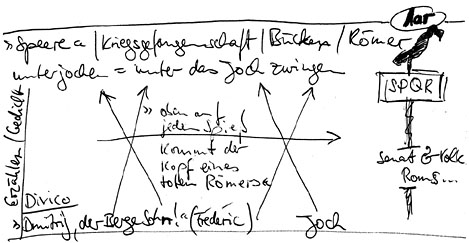 Aar
»Speere« / Kriegsgefangenschaft / Bücken / Römer
unterjochen = unter das Joch zwingen
SPQR
» oben auf
jeden Spieß
kommt der
Kopf eines
toten Römers«
Senat & Volk
Roms...
Erzählen / Gedicht
Divico
» Dimitrij, der Berge Sohn!« (Frederic) Joch